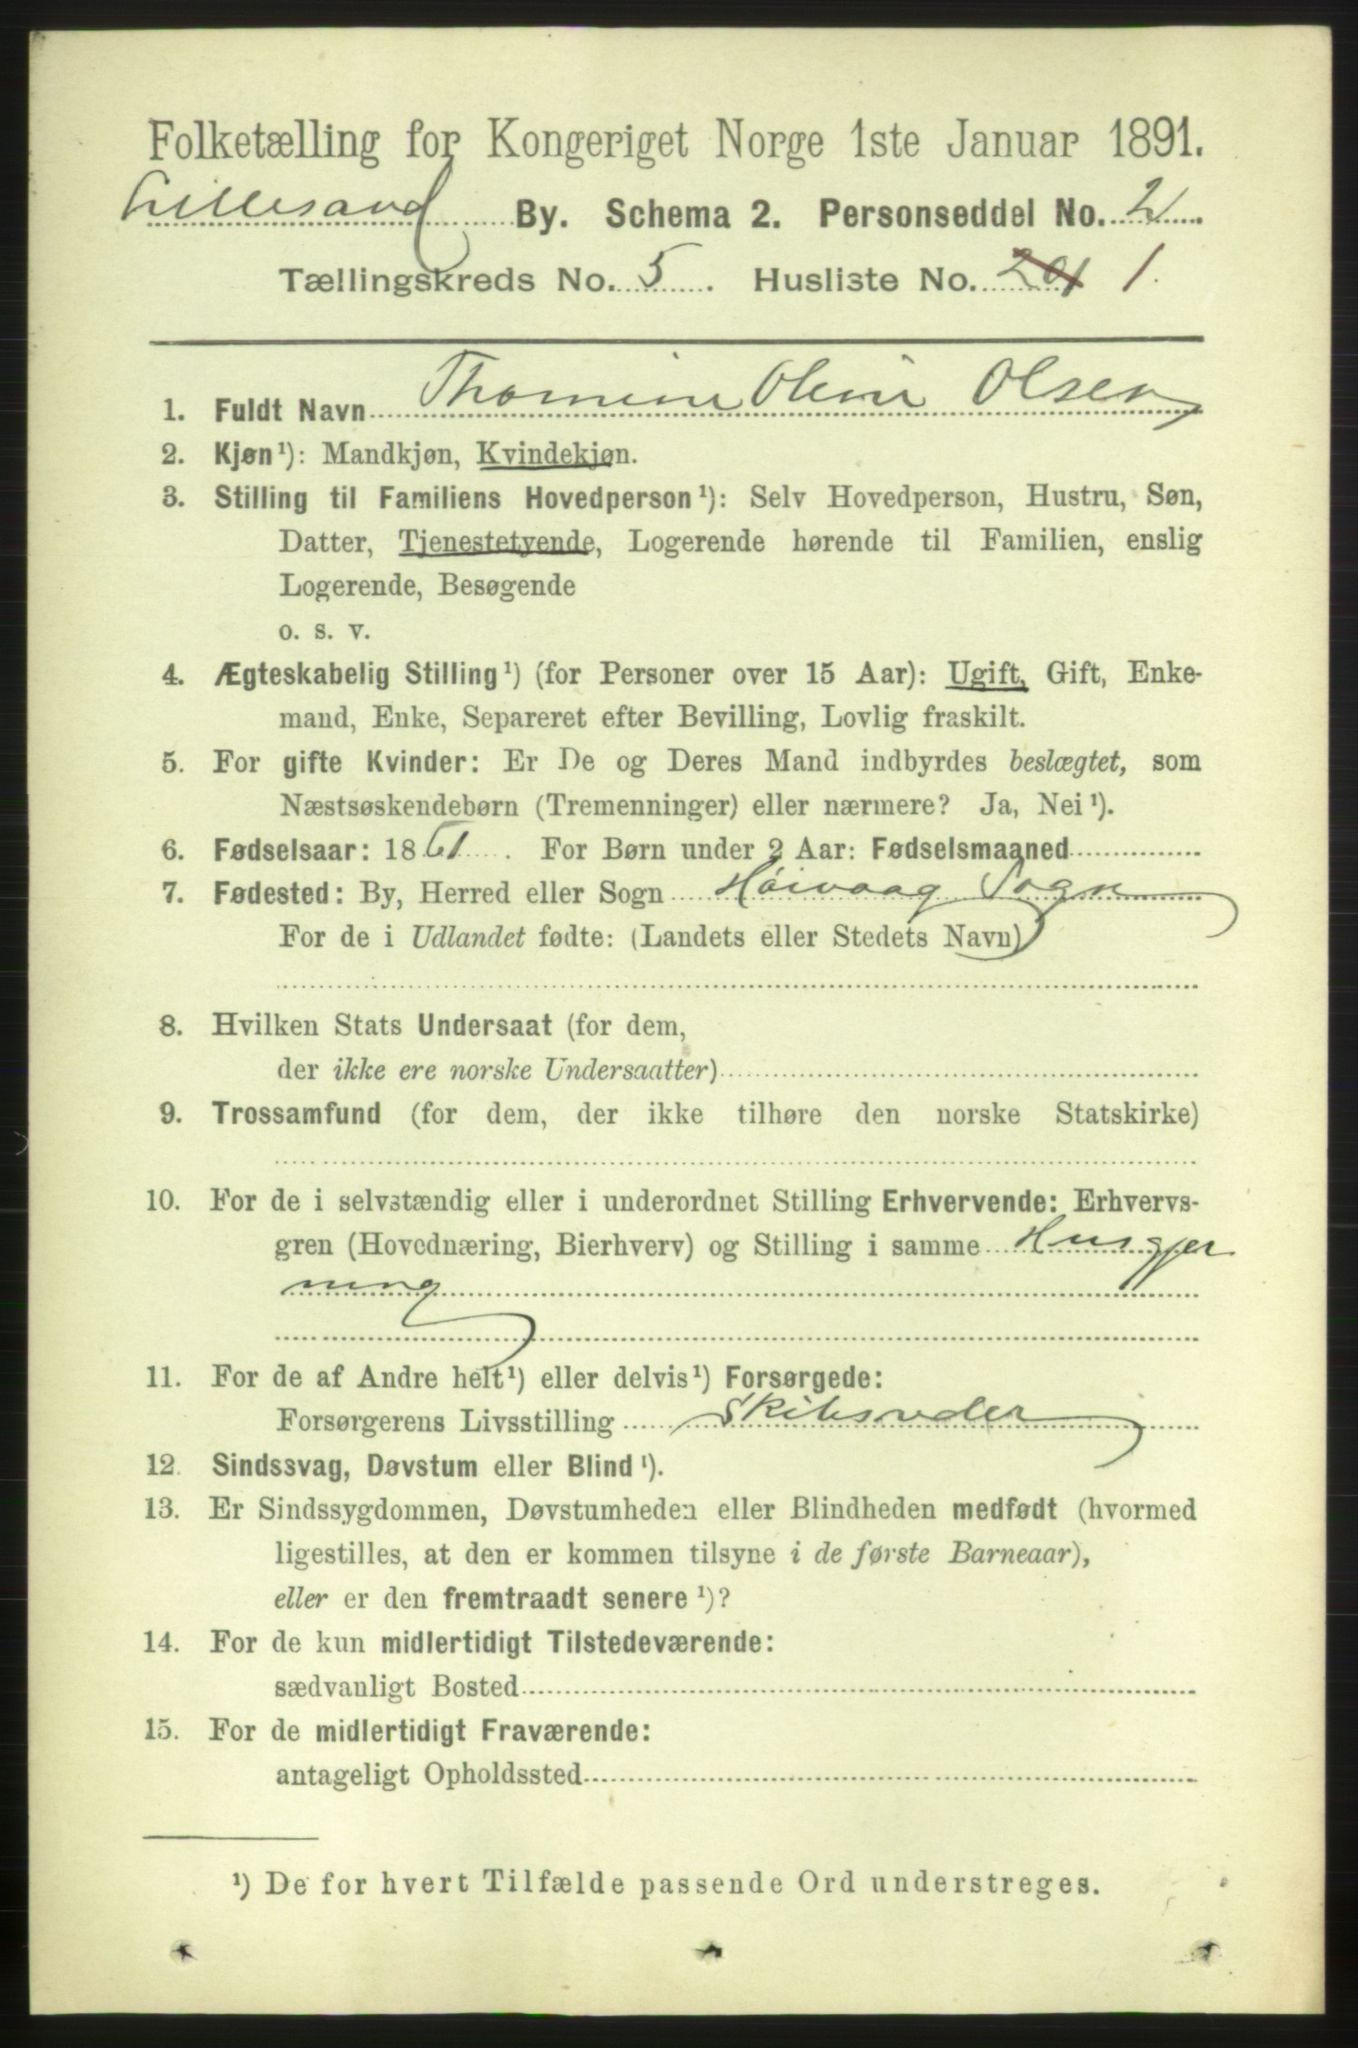 Folketælling for Kongeriget Norge 1ste Januar 1891.
Lillesand By. Schema 2. Personseddel No. 2
Tællingskreds No. 5. Husliste No. 201 1.
1. Fuldt Navn Thomine Oline Olsen
2. Kjøn¹): Mandkjøn, Kvindekjøn.
3. Stilling til Familiens Hovedperson¹): Selv Hovedperson, Hustru, Søn,
Datter, Tjenestetyende, Logerende hørende til Familien, enslig
Logerende, Besøgende
o. s. v.
4. Ægteskabelig Stilling¹) (for Personer over 15 Aar): Ugift, Gift, Enke-
mand, Enke, Separeret efter Bevilling, Lovlig fraskilt.
5. For gifte Kvinder: Er De og Deres Mand indbyrdes beslægtet, som
Næstsøskendebørn (Tremenninger) eller nærmere? Ja, Nei¹).
6. Fødselsaar: 1861. For Børn under 2 Aar: Fødselsmaaned
7. Fødested: By, Herred eller Sogn Høivaag Sogn
For de i Udlandet fødte: (Landets eller Stedets Navn)
8. Hvilken Stats Undersaat (for dem,
der ikke ere norske Undersaatter)
9. Trossamfund (for dem, der ikke tilhøre den norske Statskirke)
10. For de i selvstændig eller i underordnet Stilling Erhvervende: Erhvervs-
gren (Hovednæring, Bierhverv) og Stilling i samme Husgjer
ning
11. For de af Andre helt¹) eller delvis¹) Forsørgede:
Forsørgerens Livsstilling Skibsreder
12. Sindssvag, Døvstum eller Blind¹).
13. Er Sindssygdommen, Døvstumheden eller Blindheden medfødt (hvormed
ligestilles, at den er kommen tilsyne i de første Barneaar),
eller er den fremtraadt senere¹)?
14. For de kun midlertidigt Tilstedeværende:
sædvanligt Bosted
15. For de midlertidigt Fraværende:
antageligt Opholdssted
¹) De for hvert Tilfælde passende Ord understreges.